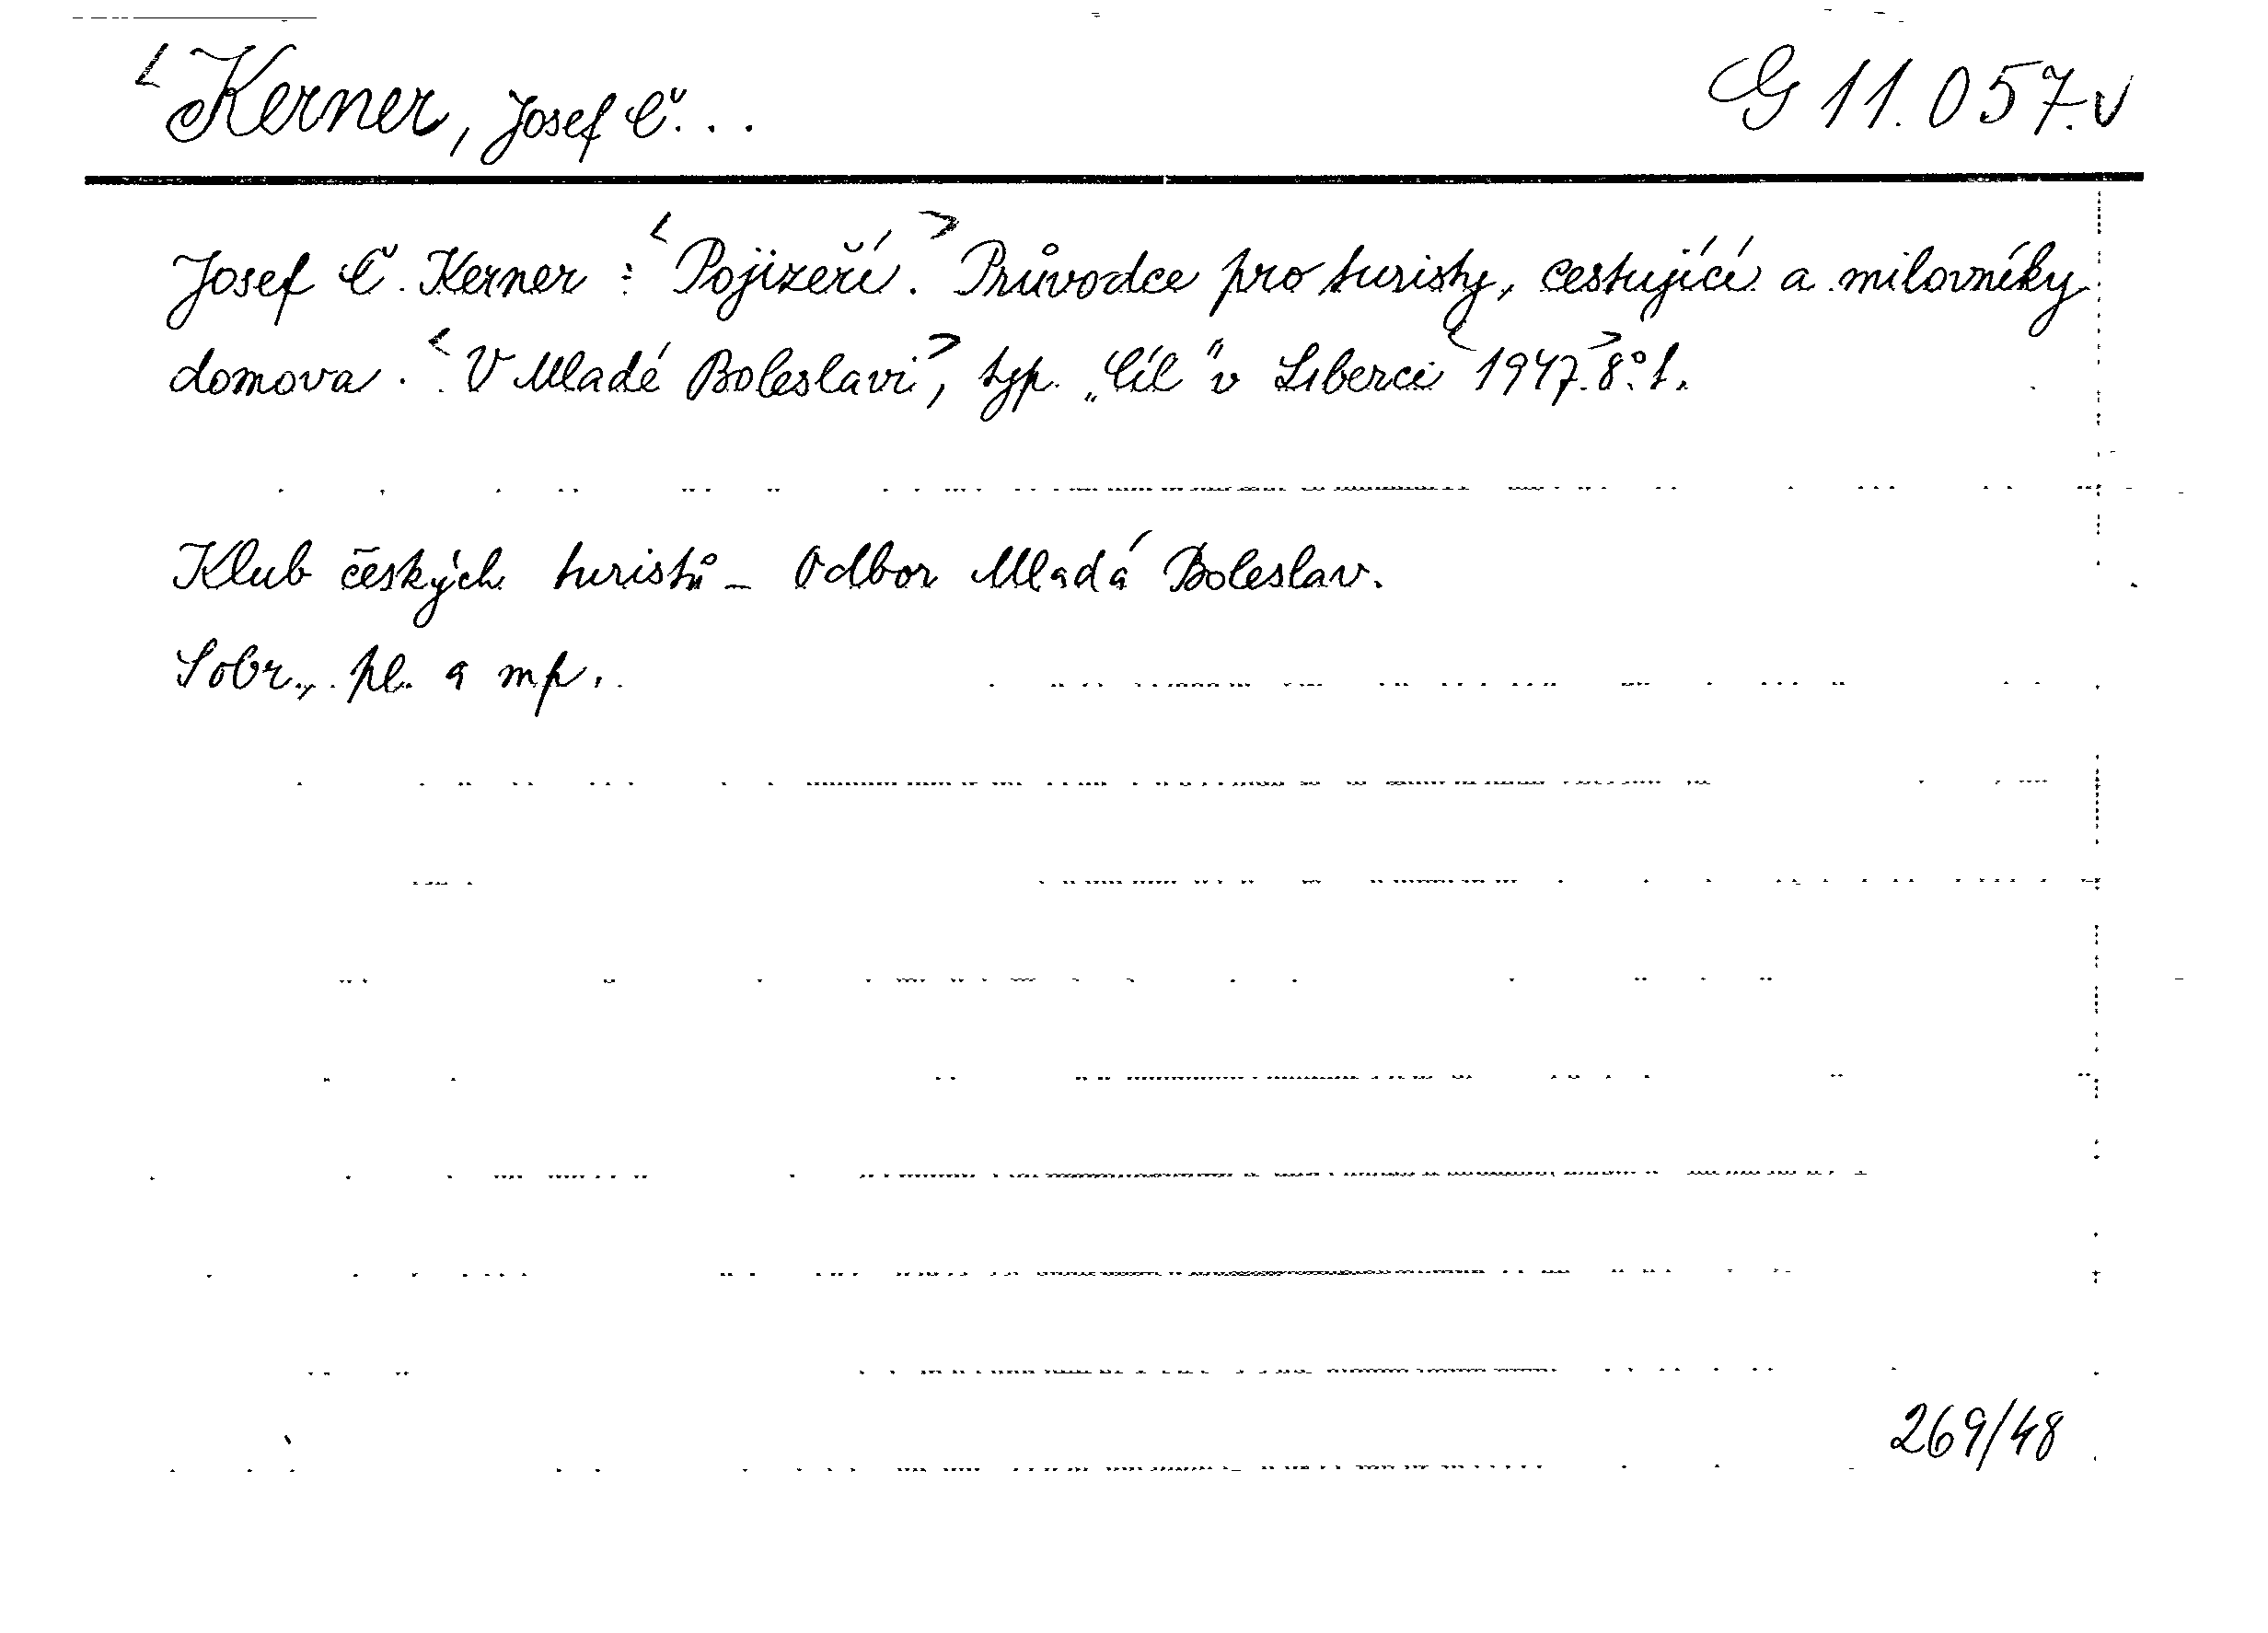 <Kerner, Josef Č... G 11.057.v
Josef Č. Kerner : <Pojizeří.> Průvodce pro turisty, cestující a milovníky
domova. <V Mladé Boleslavi>, typ. „Cíl" v Liberci <1947.> 8°. 1.
Klub českých turistů - Odbor Mladá Boleslav.
S obr., pl. a mp.
269/48